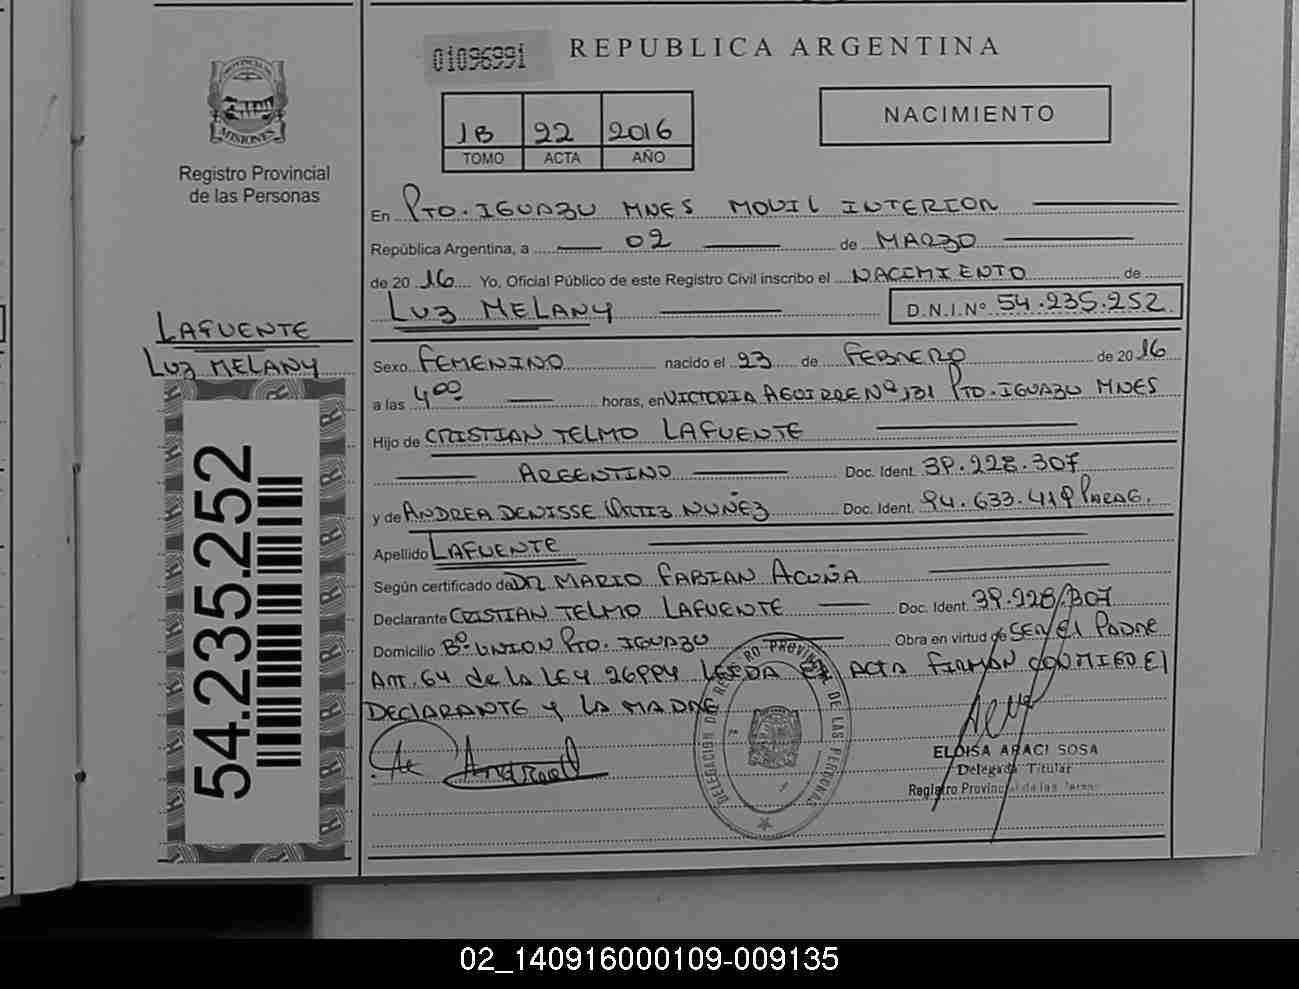 01096991
REPUBLICA ARGENTINA
PROVINCIA DE
MISIONES
Registro Provincial
de las Personas
1B 22 2016
TOMO ACTA AÑO
NACIMIENTO
En PTO. IGUAZU MNES MOVIL INTERIOR
República Argentina, a 02 de MARZO
de 2016 Yo, Oficial Público de este Registro Civil inscribo el NACIMIENTO de
LUZ MELANY D.N.I.Nº 54.235.252
LAFUENTE
LUZ MELANY
54.235.252
Sexo FEMENINO nacido el 23 de FEBRERO de 2016
a las 4:00 horas, en VICTORIA AGUIRRE Nº 131 PTO. IGUAZU MNES
Hijo de CRISTIAN TELMO LAFUENTE
ARGENTINO Doc. Ident. 39.228.307
y de ANDREA DENISSE ORTIZ NUÑEZ Doc. Ident. 94.633.419 PARAG.
Apellido LAFUENTE
Según certificado de DR MARIO FABIAN ACUÑA
Declarante CRISTIAN TELMO LAFUENTE Doc. Ident. 39.228.307
Domicilio Bº UNION PTO. IGUAZU Obra en virtud de SER El PADRE
ART. 64 de LA LEY 26994 LEIDA EL ACTA FIRMAN CONMIGO El
DECLARANTE y LA MADRE
DELEGACION DEL REGISTRO PROVINCIAL DE LAS PERSONAS
ELOISA ARACI SOSA
Delegada Titular
Registro Provincial de las Personas
02_140916000109-009135